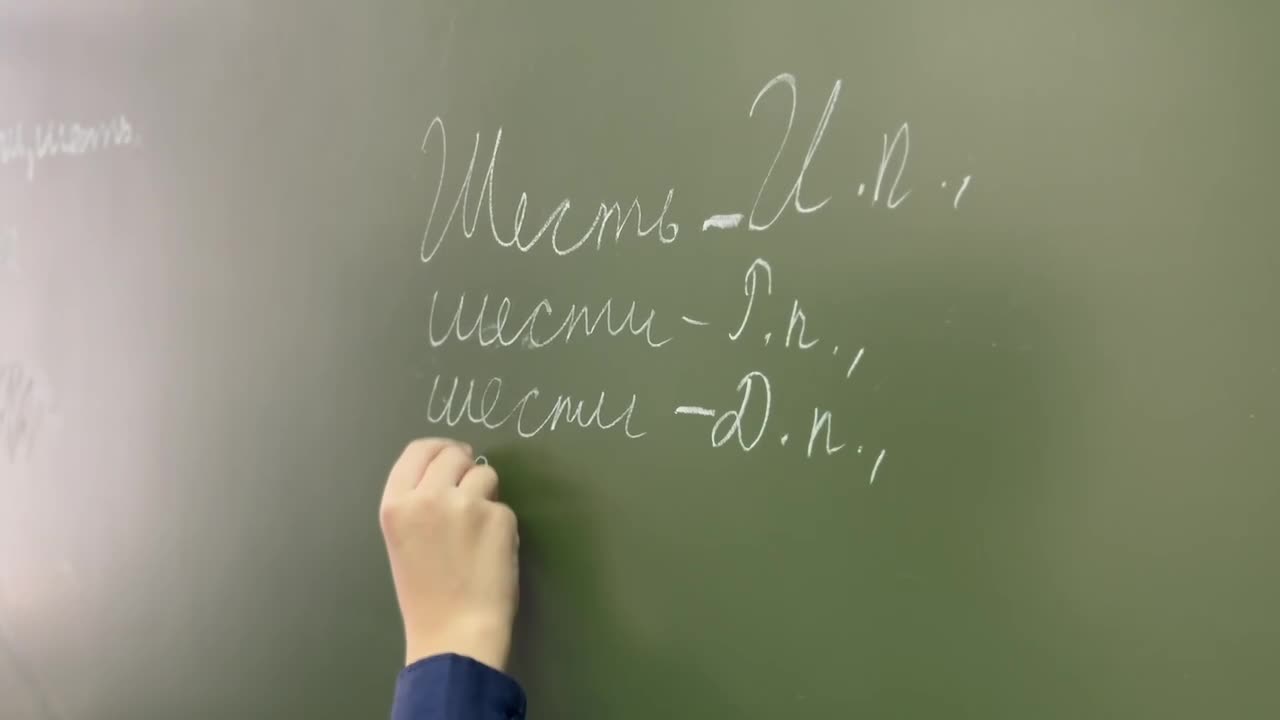 Шесть - И.п.,
шести - Р.п.,
шести - Д.п.,